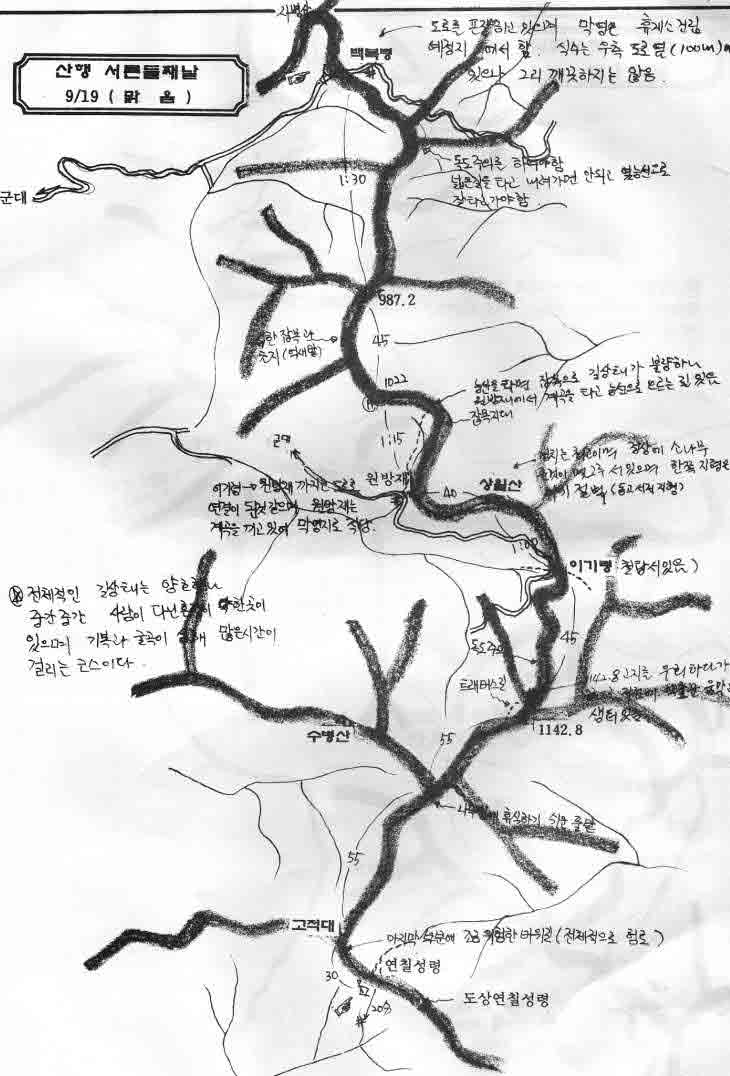 자병산
도로를 포장하고 있으며 막영은 휴게소건립
예정지 에서 함. 식수는 우측 도로옆(100m)에
있으나 그리 깨끗하지는 않음
백복령
산행 서른둘째날
9/19 ( 맑 음 )
군대
1:30
독도주의를 하여야함
넓은길을 타고 내려가면 안되고 옆능선으로
잘타고가야함
987.2
45
잡목과
초지(억새밭)
1022
능선을 타면 잡목으로 길상태가 불량하니
원방재에서 계곡을 타고 능선으로 오르는
잡목지대
1:15
원방재
40
상월산
정상에 소나무
서있으며 한쪽 지형은
절벽 (동고서저지형)
이기령→ 원방재 까지는 도로
연결이 된것같으며 원방재는
계곡을 끼고있어 막영지로 적당.
1:00
이기령 (철탑서있음)
※ 전체적인 길상태는 양호하나
중간중간 사람이 다닌 한곳이
있으며 기복과 굴곡이 심해 많은시간이
걸리는 코스이다.
45
독도주의
트래버스길
1142.8고지를 우회하다가
샘터있음
1142.8
수병산
55
휴식하기 쉬운
55
고적대
마지막 부분에 조금 위험한 바위길 (전체적으로 험로)
연칠성령
30
20분
도상연칠성령